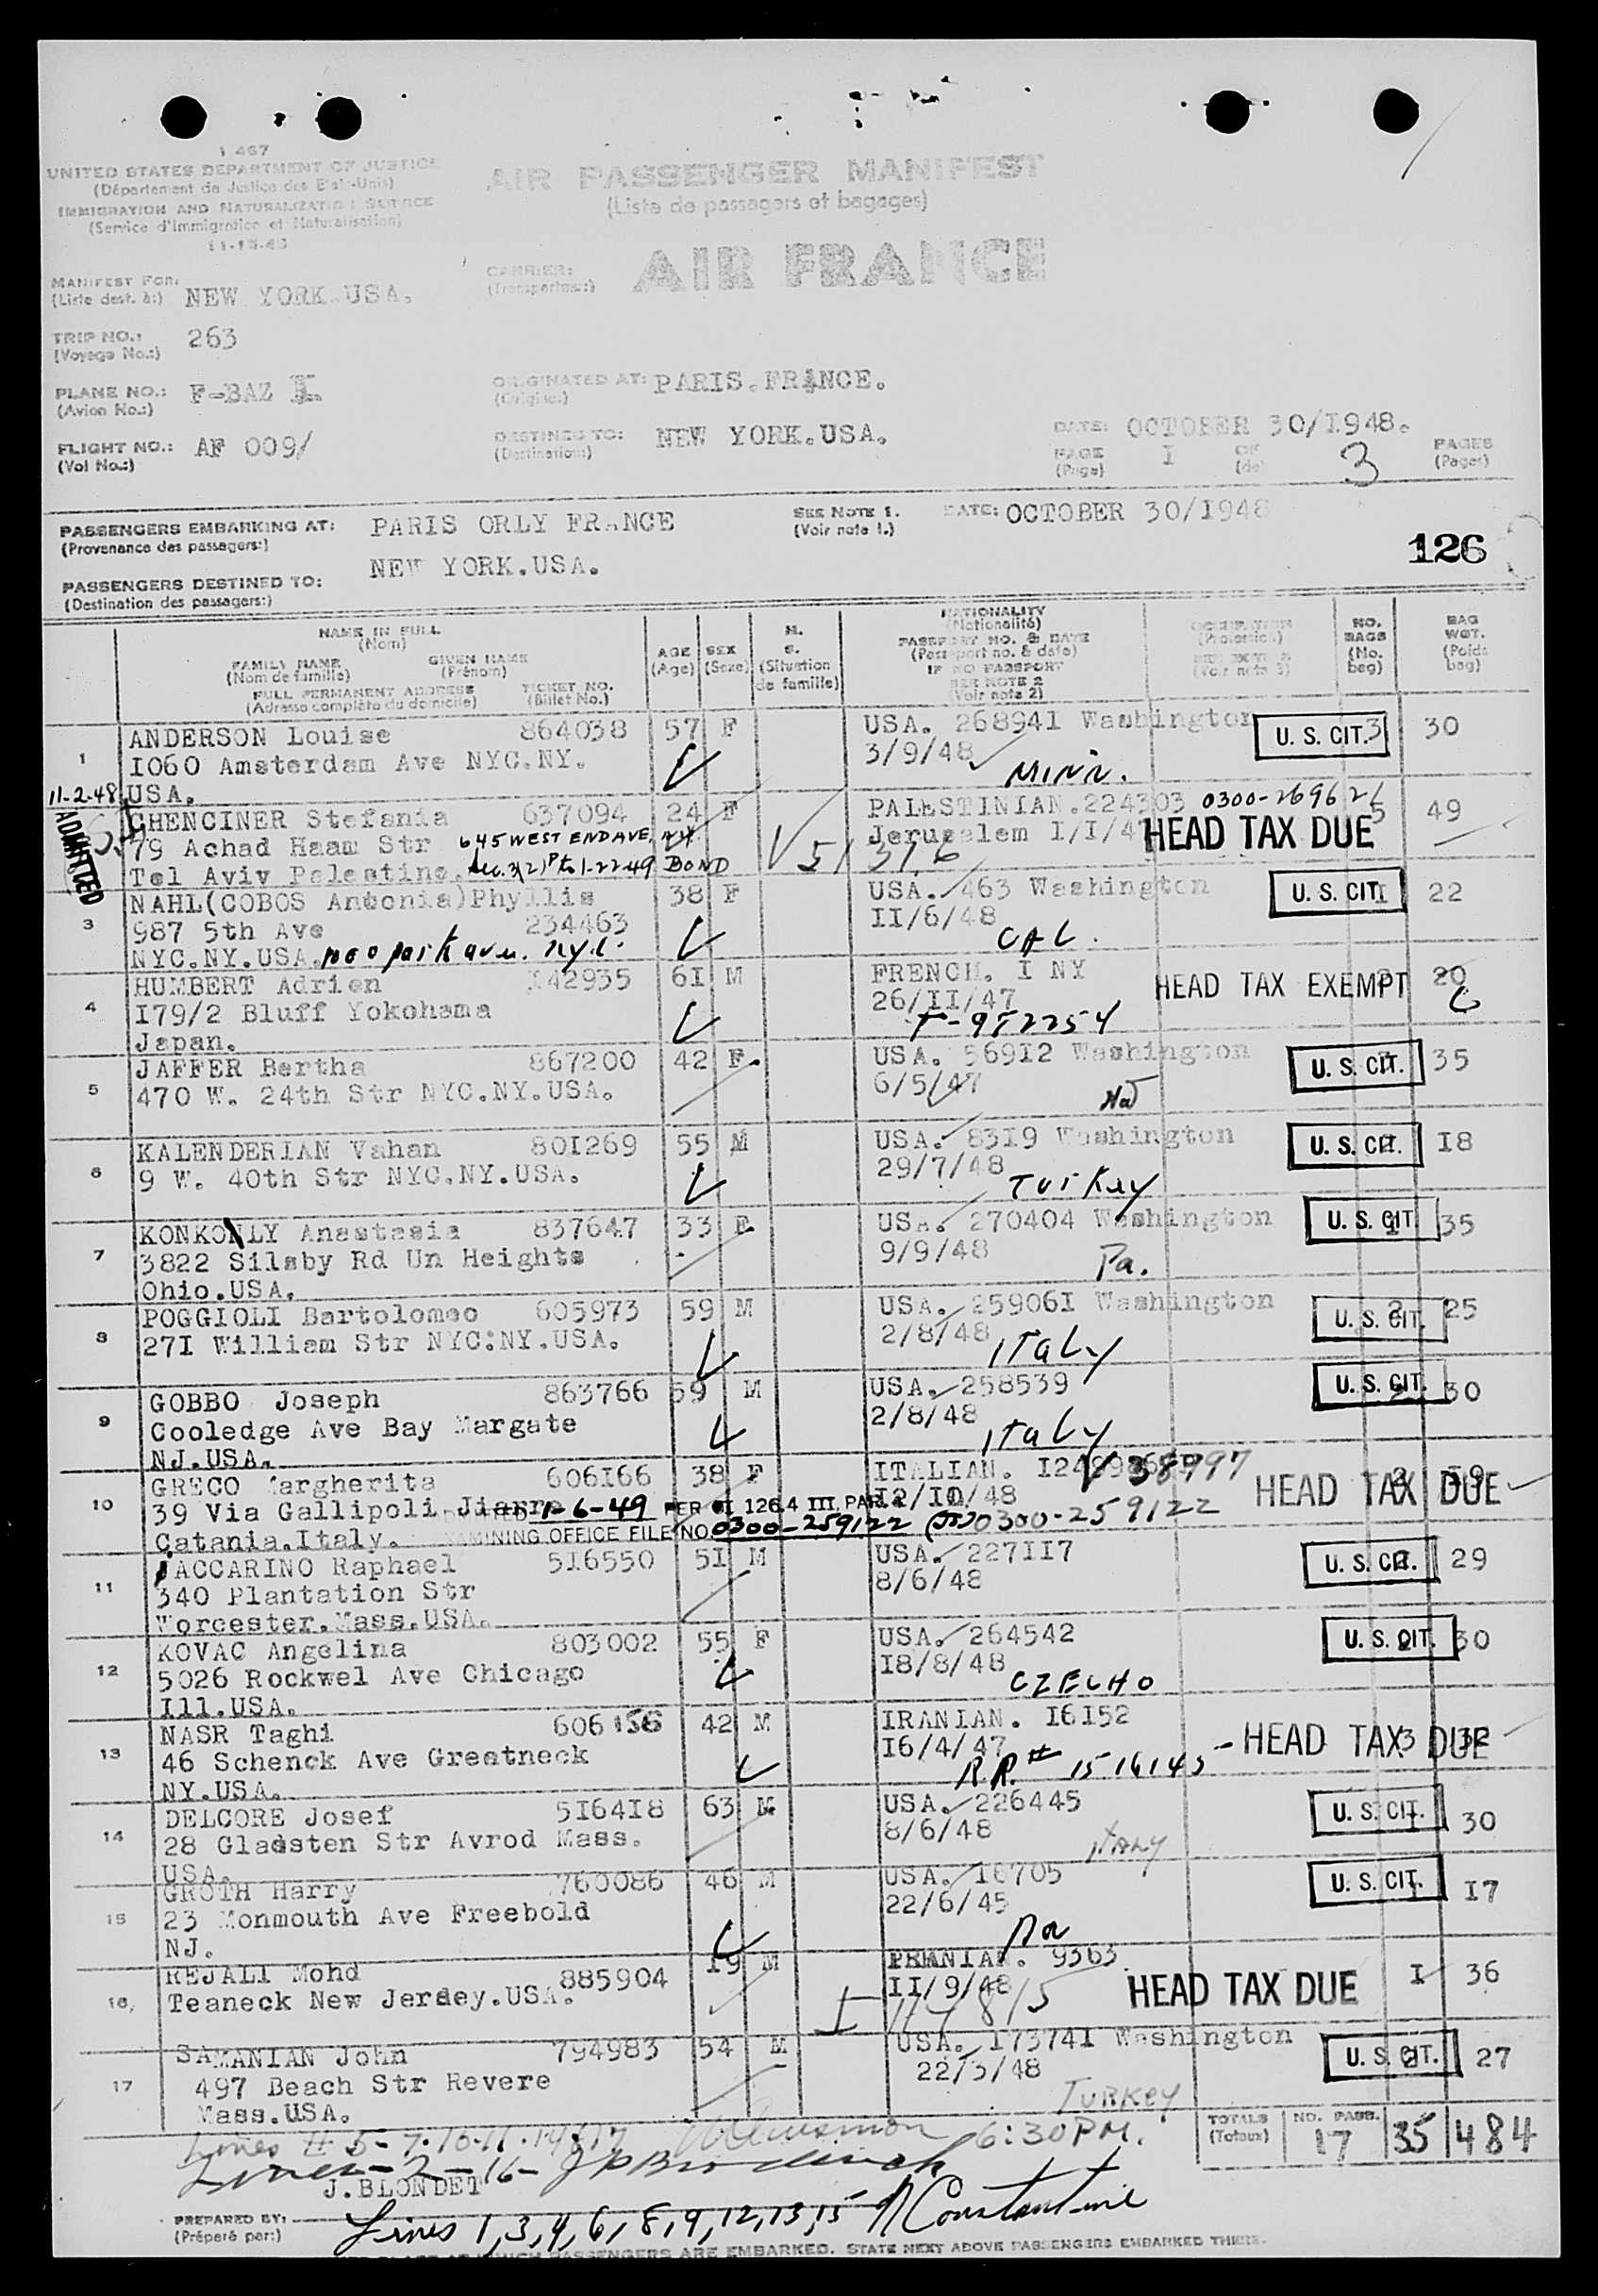 I 467
UNITED STATES DEPARTMENT OF JUSTICE
(Département de Justice des Etats-Unis)
IMMIGRATION AND NATURALIZATION SERVICE
(Service d'Immigration et Naturalisation)
11-15-43
AIR PASSENGER MANIFEST
(Liste de passagers et bagages)
MANIFEST FOR:
(Liste dest. à:) NEW YORK.USA.
CARRIER:
(Transporteur:) AIR FRANCE
TRIP NO.: 263
(Voyage No.:)
PLANE NO.: F-BAZ I
(Avion No.:)
ORIGINATED AT: PARIS.FRANCE.
(Origine:)
FLIGHT NO.: AF 009/
(Vol No.:)
DESTINED TO: NEW YORK.USA.
(Destination:)
DATE: OCTOBER 30/I948.
PAGE I OF 3 PAGES
(Page) (de) (Pages)
PASSENGERS EMBARKING AT: PARIS ORLY FRANCE
(Provenance des passagers:)
SEE NOTE 1.
(Voir note 1.)
DATE: OCTOBER 30/I948
126
PASSENGERS DESTINED TO: NEW YORK.USA.
(Destination des passagers:)
NAME IN FULL
(Nom)
FAMILY NAME GIVEN NAME
(Nom de famille) (Prénom)
FULL PERMANENT ADDRESS TICKET NO.
(Adresse complète du domicile) (Billet No.)
AGE
(Age)
SEX
(Sexe)
M.
S.
(Situation
de famille)
NATIONALITY
(Nationalité)
PASSPORT NO. & DATE
(Passeport no. & date)
IF NO PASSPORT
SEE NOTE 2
(Voir note 2)
OCCUPATION
(Profession)
SEE NOTE 3
(Voir note 3)
NO.
BAGS
(No.
bag)
BAG
WGT.
(Poids
bag)
1 ANDERSON Louise 864038 57 F USA. 268941 Washington U. S. CIT. 3 30
I060 Amsterdam Ave NYC.NY. 3/9/48 MINN.
USA.
11-2-48
ADMITTED
CHENCINER Stefania 637094 24 F PALESTINIAN.224303 0300-269621 5 49
79 Achad Haam Str 645 WEST END AVE, N.Y. Jerusalem I/I/4 HEAD TAX DUE
Tel Aviv Palestine. Sec. 3(2) to 1-22-49 BOND
3 NAHL(COBOS Antonia)Phyllis 38 F USA. 463 Washington U. S. CIT. I 22
987 5th Ave 234463 II/6/48 CAL.
NYC.NY.USA. park ave. nyc.
4 HUMBERT Adrien I42935 6I M FRENCH. I NY HEAD TAX EXEMPT 20
I79/2 Bluff Yokohama 26/II/47
Japan.
5 JAFFER Bertha 867200 42 F. USA. 569I2 Washington U. S. CIT. 35
470 W. 24th Str NYC.NY.USA. 6/5/47
6 KALENDERIAN Vahan 80I269 55 M USA. 83I9 Washington U. S. CIT. I8
9 W. 40th Str NYC.NY.USA. 29/7/48 TurKey
7 KONKOLY Anastasia 837647 33 F USA. 270404 Washington U. S. CIT. 35
3822 Silsby Rd Un Heights 9/9/48 Pa.
Ohio.USA.
8 POGGIOLI Bartolomeo 605973 59 M USA. 25906I Washington U. S. CIT. 2 25
27I William Str NYC.NY.USA. 2/8/48 ITALY
9 GOBBO Joseph 863766 59 M USA. 258539 U. S. CIT. 30
Cooledge Ave Bay Margate 2/8/48 ITALY
NJ.USA.
10 GRECO Margherita 606I66 38 F ITALIAN. V 38797 HEAD TAX DUE
39 Via Gallipoli Jiarre 1-6-49 PER 126.4 III, PAR. I2/I0/48 0300-259122
Catania.Italy. EXAMINING OFFICE FILE NO. 0300-259122
11 IACCARINO Raphael 5I6550 5I M USA. 227II7 U. S. CIT. 29
340 Plantation Str 8/6/48
Worcester.Mass.USA.
12 KOVAC Angelina 803002 55 F USA. 264542 U. S. CIT. 30
5026 Rockwel Ave Chicago I8/8/48 CZECHO
Ill.USA.
13 NASR Taghi 606156 42 M IRANIAN. I6I52 HEAD TAX DUE 3 32
46 Schenck Ave Greatneck I6/4/47 R.R.# 1516145
NY.USA.
14 DELCORE Josef 5I64I8 63 M USA. 226445 U. S. CIT. I 30
28 Gladsten Str Avrod Mass. 8/6/48 ITALY
USA.
15 GROTH Harry 760086 46 M USA. I6705 U. S. CIT. I I7
23 Monmouth Ave Freebold 22/6/45 Pa
NJ.
16, REJALI Mohd 885904 I9 M IRANIAN. 9363 HEAD TAX DUE I 36
Teaneck New Jersey.USA. II/9/48
17 SAMANIAN John 794983 54 M USA. I7374I Washington U. S. CIT. 27
497 Beach Str Revere 22/3/48
Mass.USA. TURKEY
Lines # 5-7-10-11-14&17 6:30PM.
TOTALS NO. PASS. 17 35 484
(Totaux)
Lines-2-16-
J.BLONDET
PREPARED BY:
(Préparé par:)
Lines 1,3,4,6,8,9,12,13,15 Constantine
WHICH PASSENGERS ARE EMBARKED. STATE NEXT ABOVE PASSENGERS EMBARKED THERE.